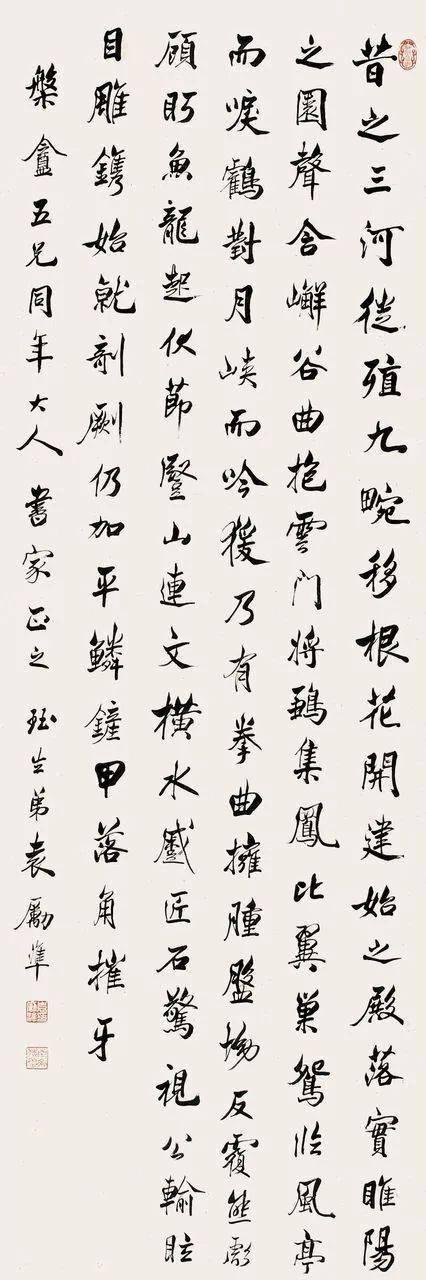 昔之三河徙殖九畹移根花開建始之殿落實睢陽
之園聲含嶰谷曲抱雲門將鶵集鳳比翼巢鴛臨風亭
而唳鶴對月峽而吟猨乃有拳曲擁腫盤坳反覆熊彪
顧盻魚龍起伏節豎山連文橫水蹙匠石驚視公輸眩
目雕鐫始就剞劂仍加平鱗鏟甲落角摧牙
槃盦五兄同年大人 書家正之 珏生弟袁勵準